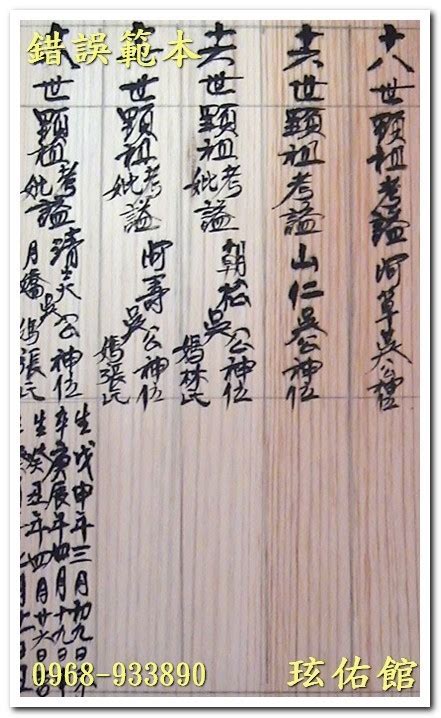 錯誤範本
十八世顯祖考諡阿草吳公神位
十六世顯祖考諡山仁吳公神位
十六世顯祖考妣諡朝松吳公神位媽林氏
世顯祖考妣諡阿壽吳公神位媽張氏
八世顯祖考妣諡清
月嬌吳媽張氏
公神位
生戊申年三月初九日
卒庚辰年四月十九日
生癸丑年四月廿六日
0968-933890
玹佑館